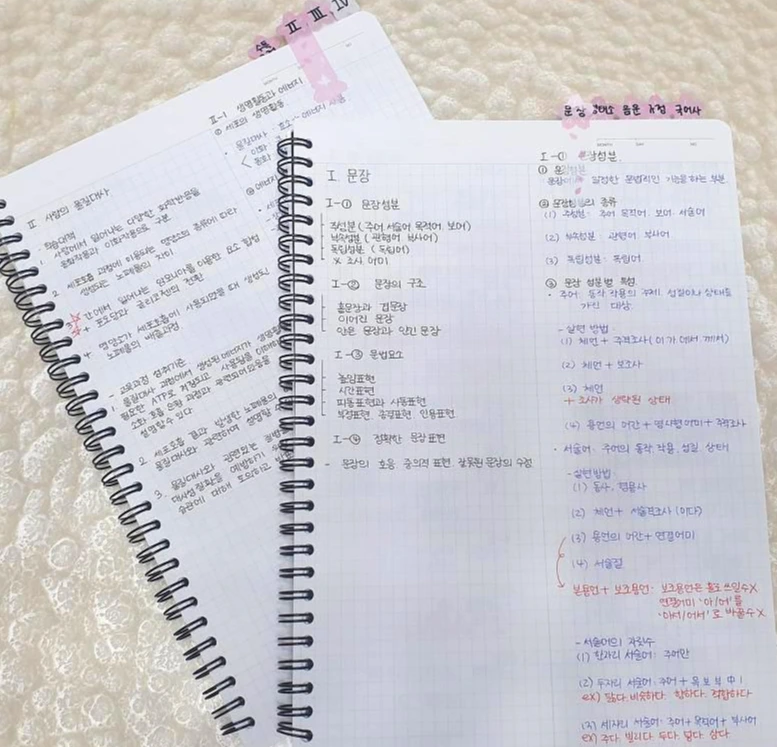 수특
II, III, IV
II 사람의 물질대사
학습대책
1. 사람에서 일어나는 다양한 화학반응을
동화작용과 이화작용으로 구분
2. 세포호흡 과정에 이용되는 영양소의 종류에 따라
생성되는 노폐물의 차이
3. 간에서 일어나는 암모니아를 이용한 요소 합성
+ 포도당과 글리코젠의 전환
4. 영양소가 세포호흡에 사용되었을 때 생성된
노폐물의 배출과정
- 교육과정 성취기준
1. 물질대사 과정에서 생성된 에너지가
필요한 ATP로 저장되고 사용됨을
소화 호흡 순환 과정과 관련되어있음을
설명할 수 있다
2. 세포호흡 결과 발생한 노폐물의
물질대사와 관련하여 설명할
3. 물질대사와 관련있는
대사성 질환을 예방하기
습관에 대해 토의하고
II-1 생명활동과 에너지
① 세포의 생명활동
물질대사 : 효소
이화
동화
문장 형태소 음운 국어사
I. 문장
I-① 문장성분
주성분 (주어 서술어 목적어 보어)
부속성분 (관형어 부사어)
독립성분 (독립어)
※ 조사 어미
I-② 문장의 구조
홑문장과 겹문장
이어진 문장
안은 문장과 안긴 문장
I-③ 문법요소
높임표현
시간표현
피동표현과 사동표현
부정표현, 종결표현, 인용표현
I-④ 정확한 문장표현
- 문장의 호응 중의적 표현 잘못된 문장의 수정
MONTH DAY NO
I-① 문장성분.
① 문장성분
일정한 문법적인 기능을 하는 부분
② 문장성분의 종류
(1) 주성분 : 주어 목적어. 보어. 서술어
(2) 부속성분 : 관형어. 부사어
(3) 독립성분 : 독립어.
③ 문장 성분별 특성
· 주어 : 동작 작용의 주체. 성질이나 상태를
가진 대상.
- 실현 방법
(1) 체언 + 주격조사 (이 가. 에서. 께서)
(2) 체언 + 보조사
(3) 체언
+ 조사가 생략된 상태
(4) 용언의 어간 + 명사형 어미 + 주격조사
· 서술어 : 주어의 동작. 작용. 성질. 상태
- 실현 방법
(1) 동사. 형용사
(2) 체언 + 서술격조사 (이다)
(3) 용언의 어간 + 연결어미
(4) 서술절
본용언 + 보조용언 : 보조용언은 홀로 쓰일수X
연결어미 '아/어'를
'아서/어서'로 바꿀수X
- 서술어의 자릿수
(1) 한자리 서술어 : 주어만
(2) 두자리 서술어 : 주어 + 목 보 부 中 1
ex) 닮다. 비슷하다. 향하다. 적합하다
(3) 세자리 서술어 : 주어 + 목적어 + 부사어
ex) 주다. 빌리다. 두다. 넣다. 삼다